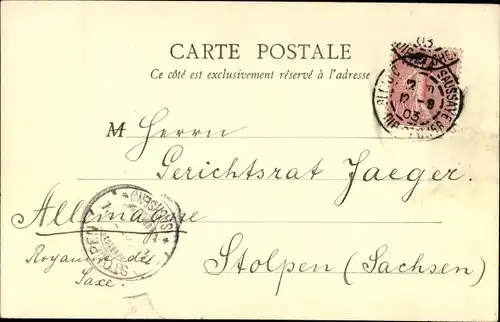 CARTE POSTALE
Ce côté est exclusivement réservé à l'adresse
M Herrn
Gerichtsrat Jaeger.
Allemagne
Royaume de
Saxe.
Stolpen (Sachsen)
03
12 -9
03
STOLPEN